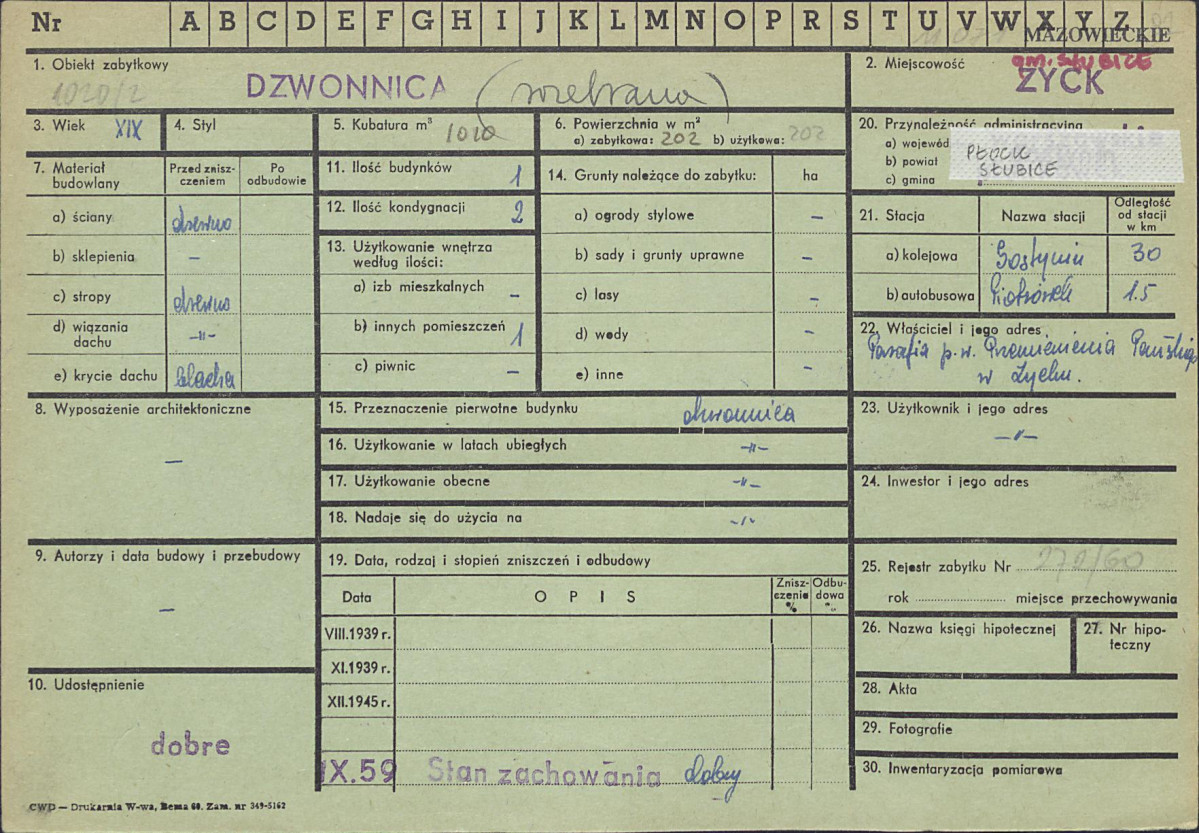 Nr A B C D E F G H I J K L M N O P R S T U V W X Y Z
MAZOWIECKIE
1. Obiekt zabytkowy
1020/2
DZWONNICA (rozebrana)
2. Miejscowość
gm. SŁUBICE
ZYCK
3. Wiek XIX
4. Styl
5. Kubatura m³ 1010
6. Powierzchnia w m²
a) zabytkowa: 202 b) użytkowa: 202
7. Materiał budowlany
Przed zniszczeniem
Po odbudowie
a) ściany drewno
b) sklepienia –
c) stropy drewno
d) wiązania dachu -"-
e) krycie dachu blacha
8. Wyposażenie architektoniczne
–
9. Autorzy i data budowy i przebudowy
–
10. Udostępnienie
dobre
11. Ilość budynków 1
12. Ilość kondygnacji 2
13. Użytkowanie wnętrza
według ilości:
a) izb mieszkalnych –
b) innych pomieszczeń 1
c) piwnic –
14. Grunty należące do zabytku: ha
a) ogrody stylowe –
b) sady i grunty uprawne –
c) lasy –
d) wody –
e) inne –
15. Przeznaczenie pierwotne budynku dzwonnica
16. Użytkowanie w latach ubiegłych -"-
17. Użytkowanie obecne -"-
18. Nadaje się do użycia na -"-
19. Data, rodzaj i stopień zniszczeń i odbudowy
Data
O P I S
Zniszczenie %
Odbudowa %
VIII.1939 r.
XI.1939 r.
XII.1945 r.
IX.59 Stan zachowania dobry
20. Przynależność administracyjna
a) wojewód
b) powiat PŁOCK
c) gmina SŁUBICE
21. Stacja
Nazwa stacji
Odległość od stacji w km
a) kolejowa Gostynin 30
b) autobusowa Piotrówek 1.5
22. Właściciel i jego adres
Parafia p.w. Przemienienia Pańskiego
w Zycku.
23. Użytkownik i jego adres
-"-
24. Inwestor i jego adres
25. Rejestr zabytku Nr 272/60
rok miejsce przechowywania
26. Nazwa księgi hipotecznej
27. Nr hipoteczny
28. Akta
29. Fotografie
30. Inwentaryzacja pomiarowa
CWD — Drukarnia W-wa, Bema 60. Zam. nr 349-5162